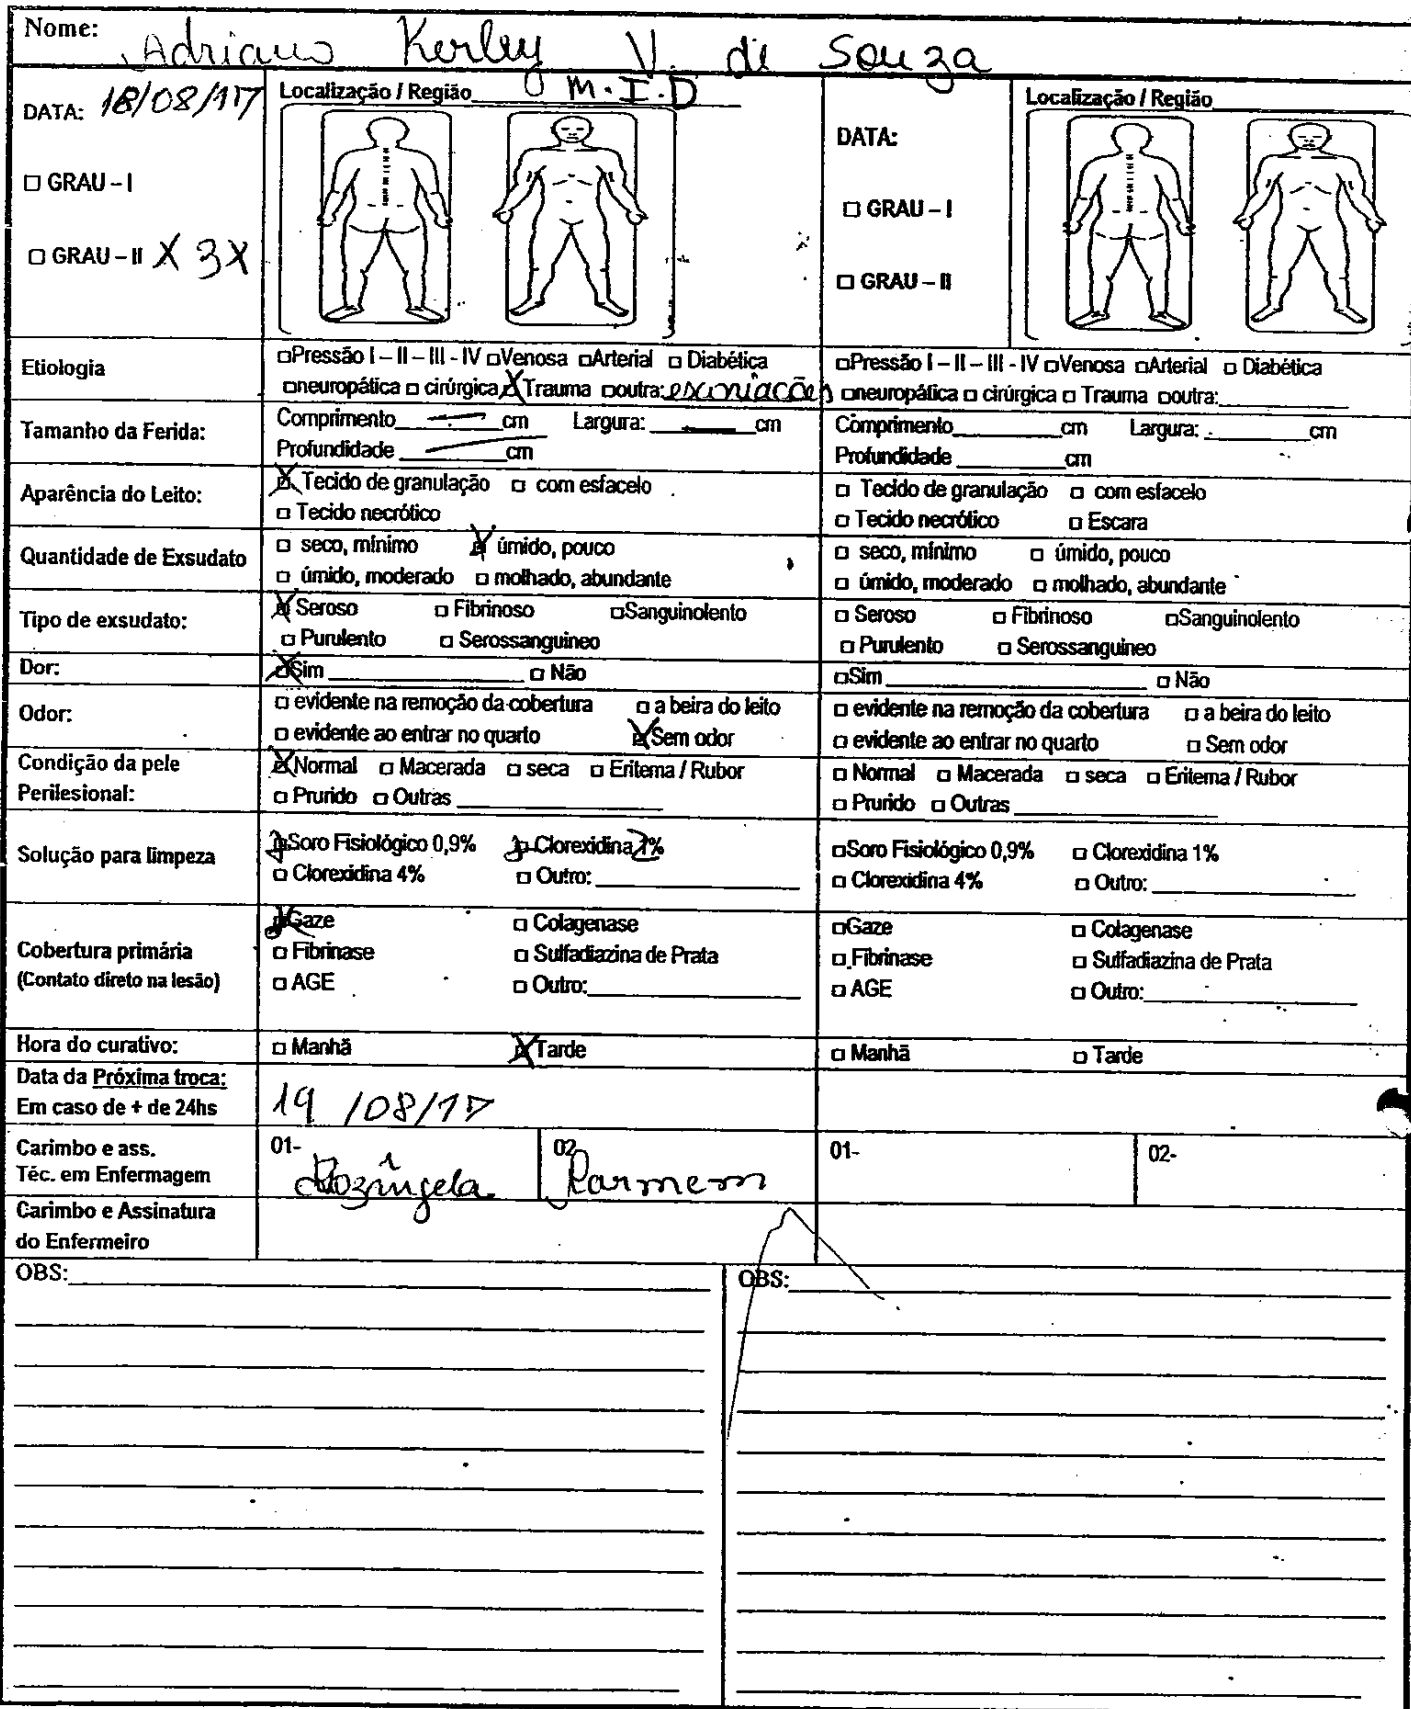 Nome: Adriano Kerley V. de Souza
DATA: 18/08/17
□ GRAU – I
□ GRAU – II X 3X
Localização / Região M.I.D
DATA:
□ GRAU – I
□ GRAU – II
Localização / Região
Etiologia
□Pressão I – II – III - IV □Venosa □Arterial □ Diabética
□neuropática □ cirúrgica X Trauma □outra: escoriações
□Pressão I – II – III - IV □Venosa □Arterial □ Diabética
□neuropática □ cirúrgica □ Trauma □outra:
Tamanho da Ferida:
Comprimento — cm Largura: — cm
Profundidade — cm
Comprimento cm Largura: cm
Profundidade cm
Aparência do Leito:
X Tecido de granulação □ com esfacelo
□ Tecido necrótico
□ Tecido de granulação □ com esfacelo
□ Tecido necrótico □ Escara
Quantidade de Exsudato
□ seco, mínimo X úmido, pouco
□ úmido, moderado □ molhado, abundante
□ seco, mínimo □ úmido, pouco
□ úmido, moderado □ molhado, abundante
Tipo de exsudato:
X Seroso □ Fibrinoso □Sanguinolento
□ Purulento □ Serossanguineo
□ Seroso □ Fibrinoso □Sanguinolento
□ Purulento □ Serossanguineo
Dor:
X Sim □ Não
□Sim □ Não
Odor:
□ evidente na remoção da cobertura □ a beira do leito
□ evidente ao entrar no quarto X Sem odor
□ evidente na remoção da cobertura □ a beira do leito
□ evidente ao entrar no quarto □ Sem odor
Condição da pele
Perilesional:
X Normal □ Macerada □ seca □ Eritema / Rubor
□ Prurido □ Outras
□ Normal □ Macerada □ seca □ Eritema / Rubor
□ Prurido □ Outras
Solução para limpeza
□Soro Fisiológico 0,9% □ Clorexidina 2%
□ Clorexidina 4% □ Outro:
□Soro Fisiológico 0,9% □ Clorexidina 1%
□ Clorexidina 4% □ Outro:
Cobertura primária
(Contato direto na lesão)
X Gaze □ Colagenase
□ Fibrinase □ Sulfadiazina de Prata
□ AGE □ Outro:
□Gaze □ Colagenase
□ Fibrinase □ Sulfadiazina de Prata
□ AGE □ Outro:
Hora do curativo:
□ Manhã X Tarde
□ Manhã □ Tarde
Data da Próxima troca:
Em caso de + de 24hs
19 /08/17
Carimbo e ass.
Téc. em Enfermagem
01- Rozângela 02 Carmem
01- 02-
Carimbo e Assinatura
do Enfermeiro
OBS:
OBS: